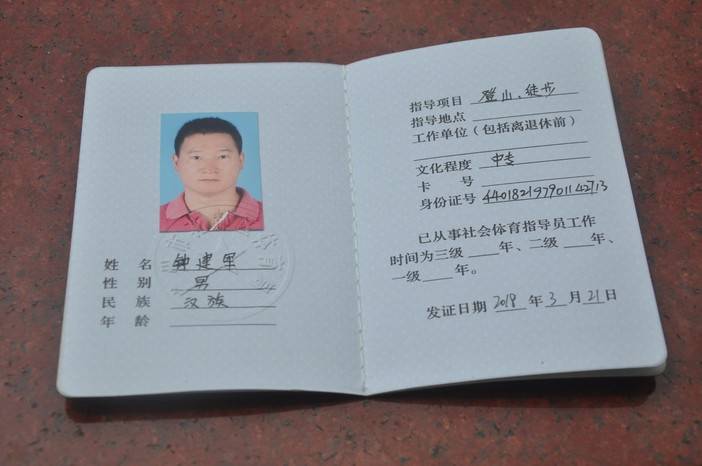 姓 名 钟建军
性 别 男
民 族 汉族
年 龄
指导项目 登山、徒步
指导地点
工作单位（包括离退休前）
文化程度 中专
卡 号
身份证号 440182197901142713
已从事社会体育指导员工作
时间为三级 年、二级 年、
一级 年。
发证日期 2019 年 3 月 21 日